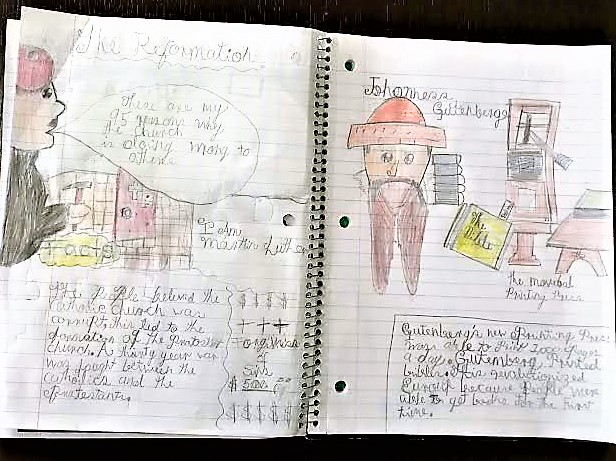 The Reformation
These are my
95 reasons why
the church
is doing wrong to
I am
Martin Luther
Facts
The people behind the
Catholic church was
corrupt, this led to the
formation of the
church. A thirty year war
was fought between the
Catholics and the
$ $ $ $
+ + +
Forgivness
of
Sins
$ 500.00
$ $ $ $
Johanness
Gutenberge
The Bible
The movabal
Printing Press
Gutenberg's new Printing Press
was able to Print pages
a day. Gutenberg Printed
bibles. This revolutionized
because people were
able to get books for the first
time.